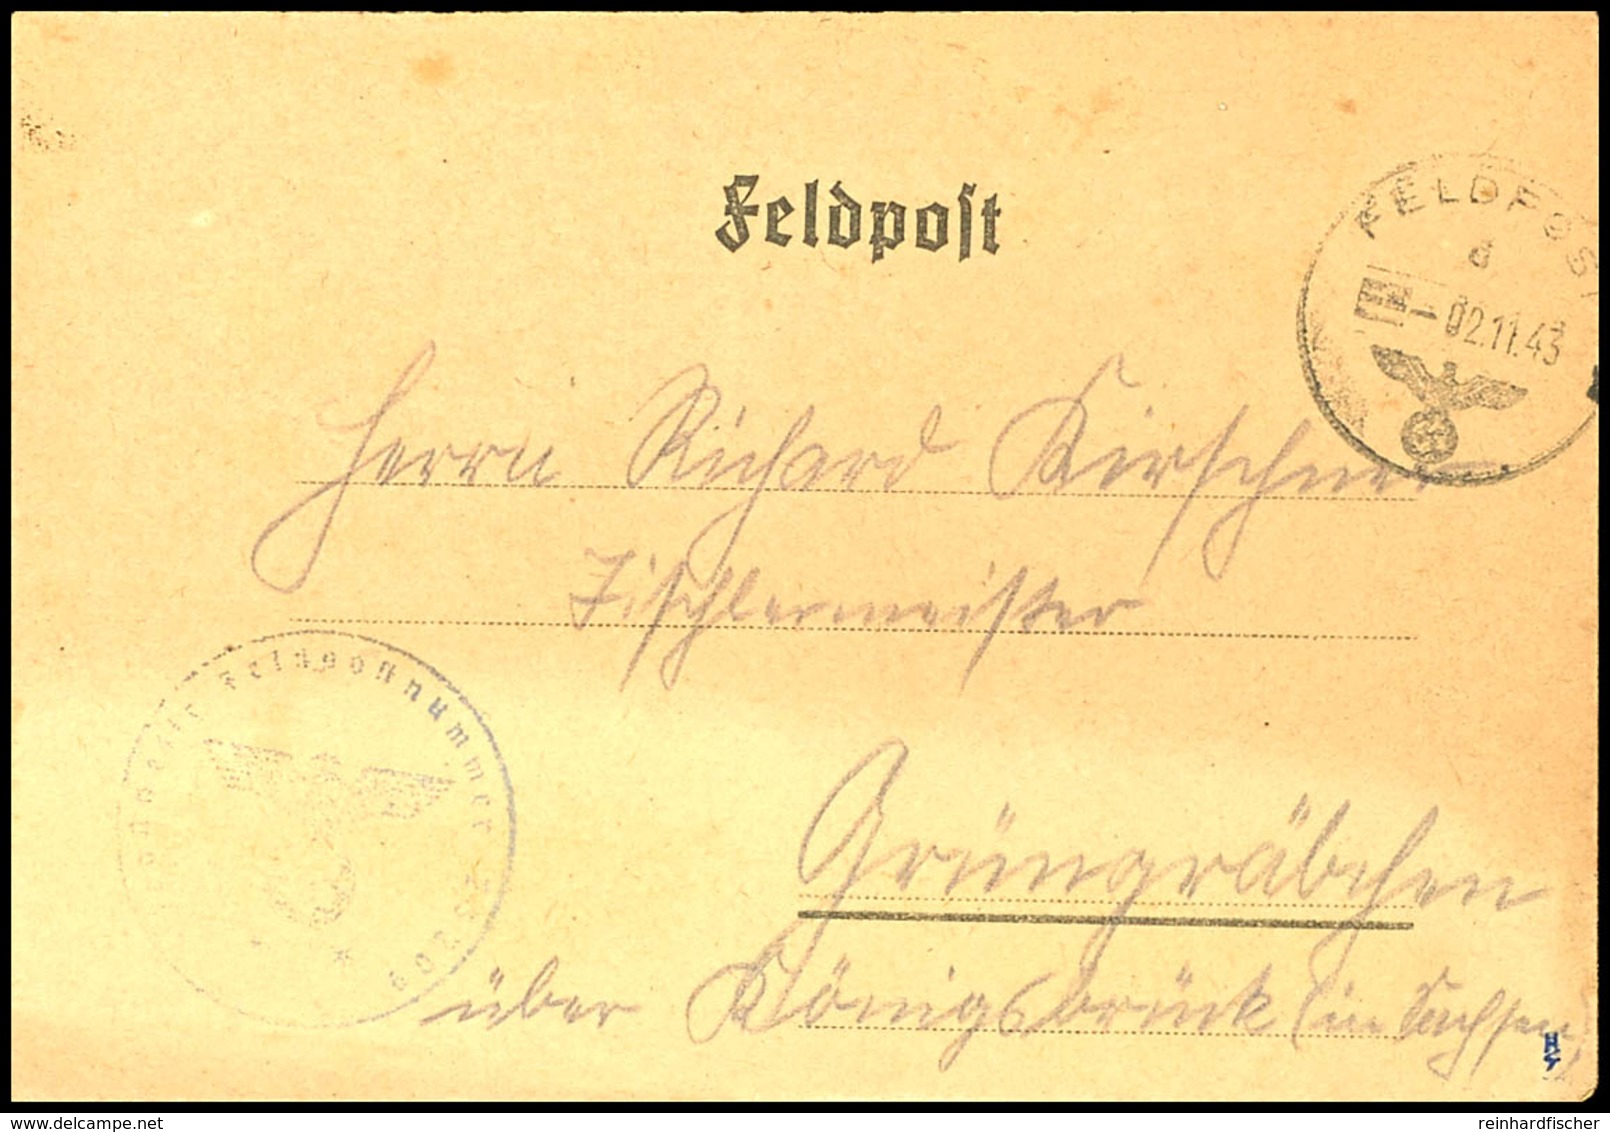 Feldpost
FELDPOST
d
-02.11.43
Herrn Richard Kirschner
Tischlermeister
Feldpostnummer
Grüngräbchen
über Königsbrück (in Sachsen)
delcampe.net
reinhardfischer